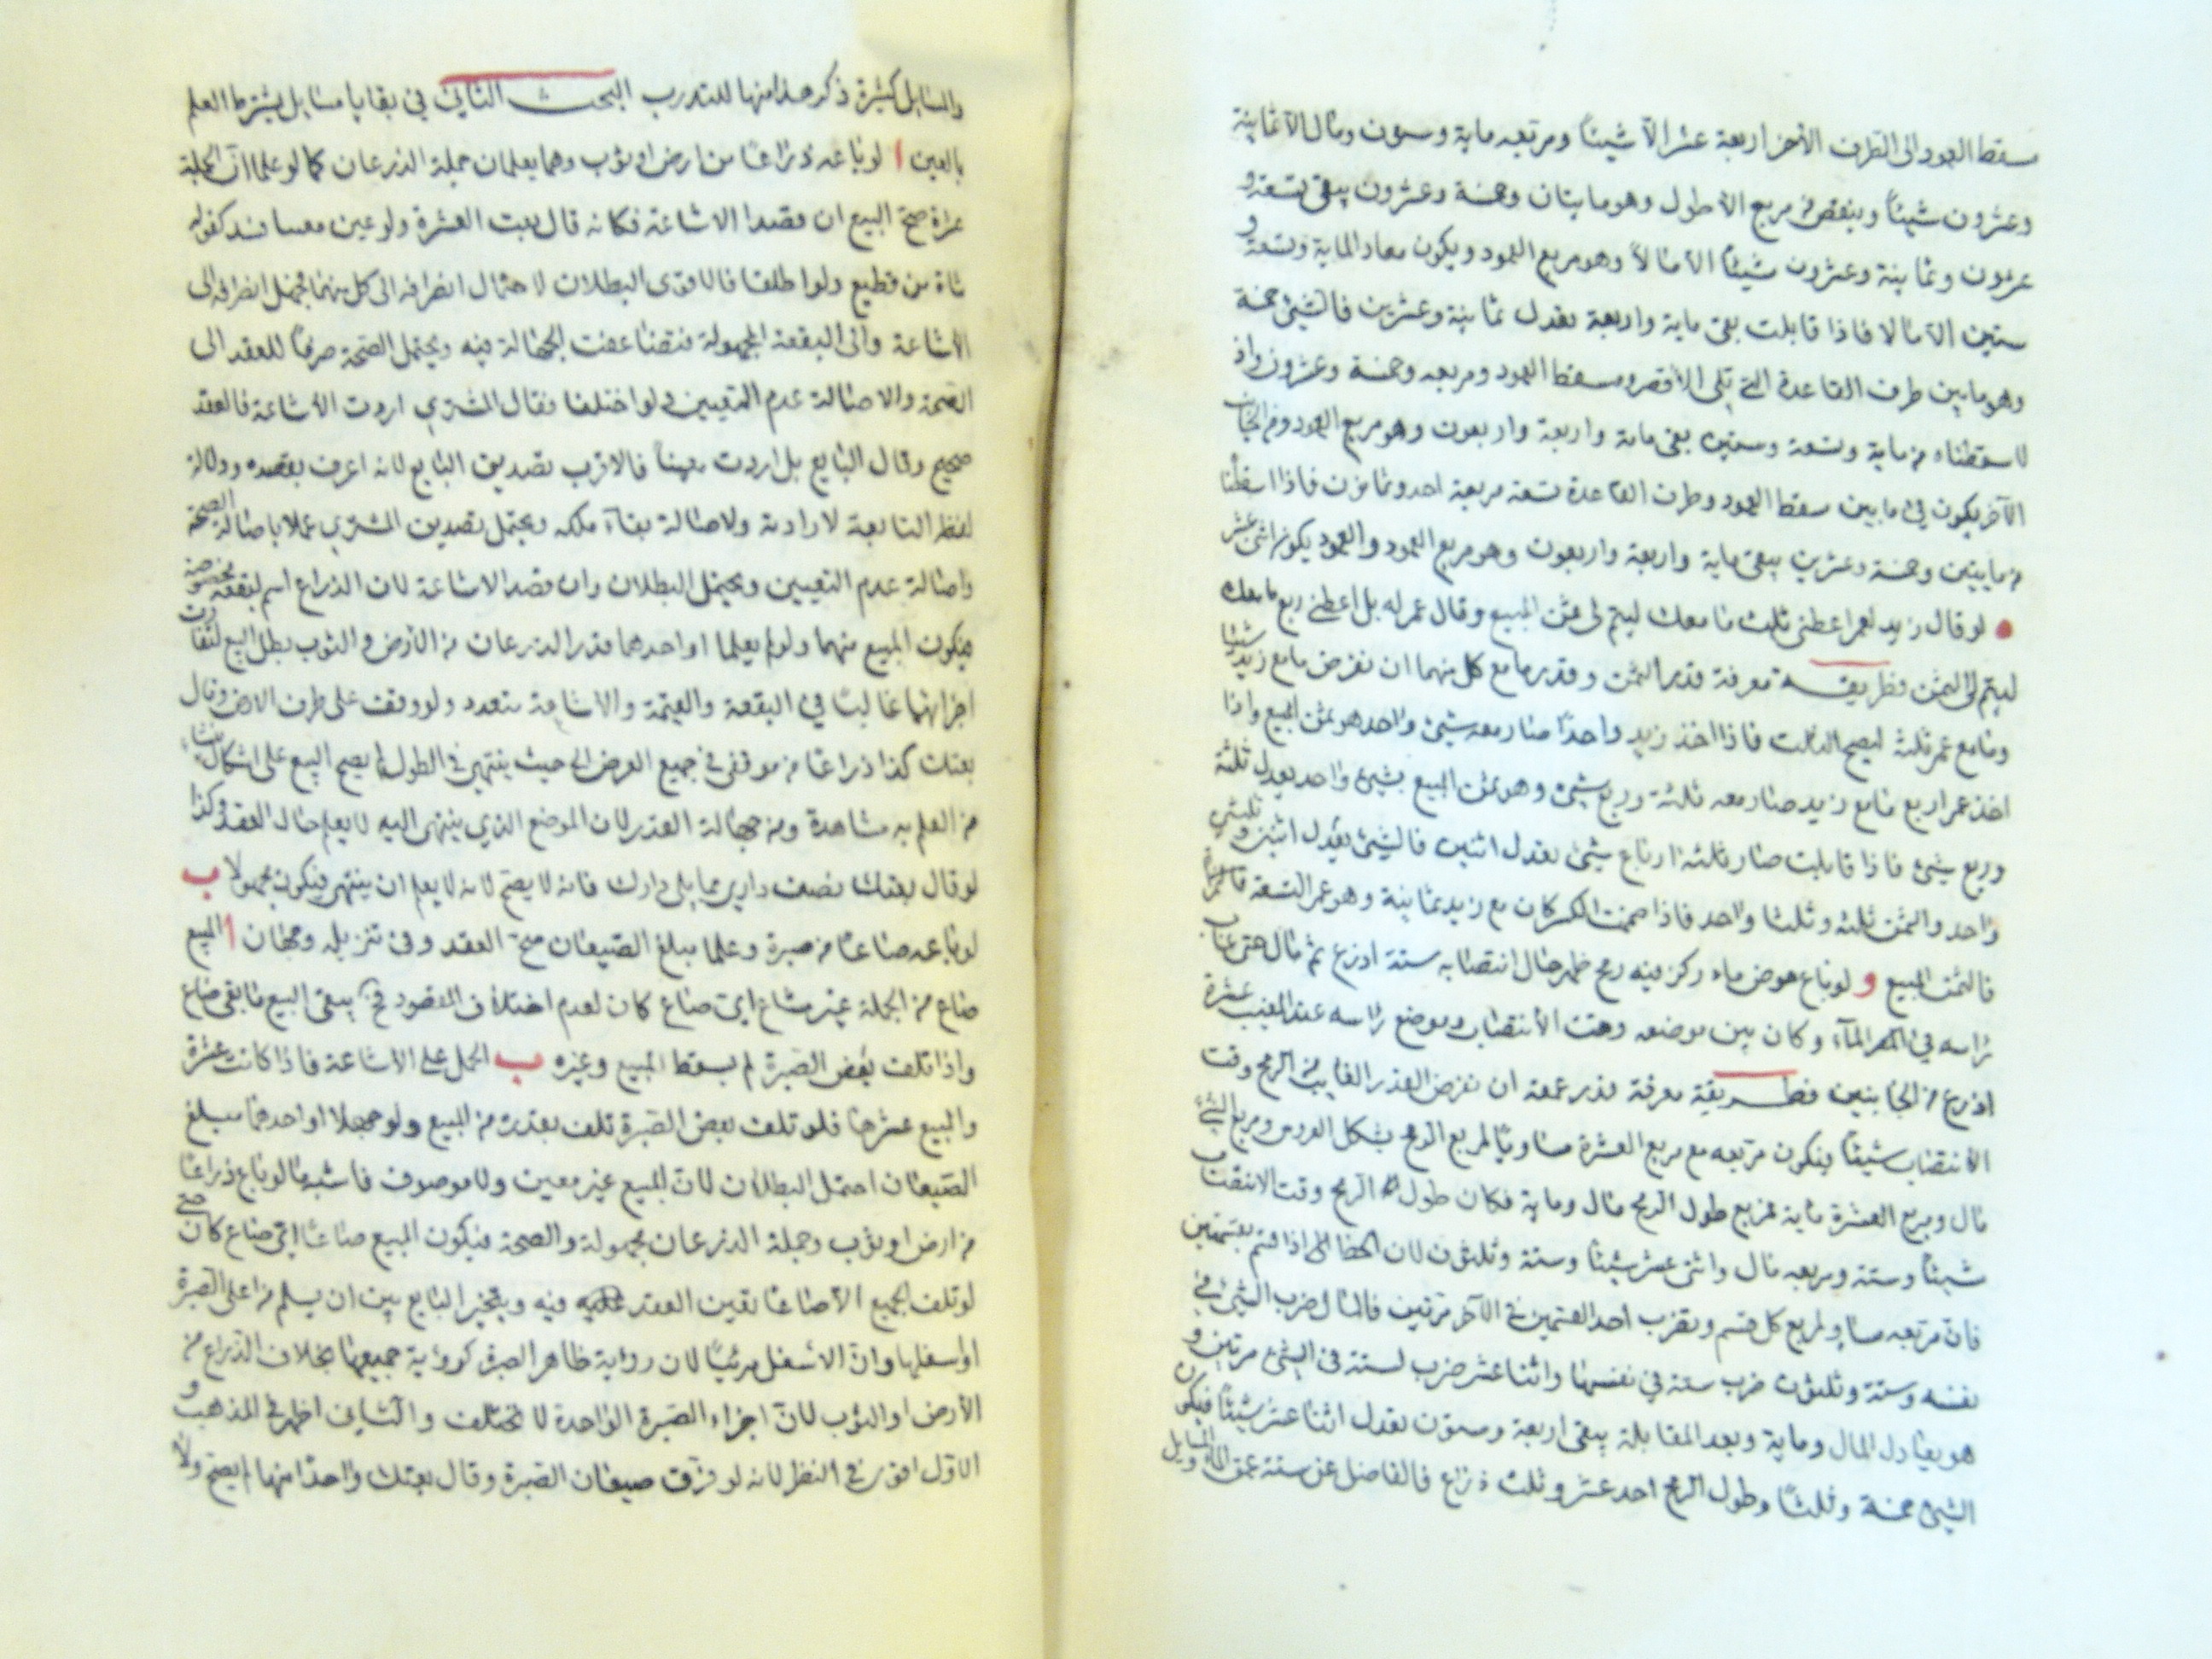 مسقط العمود الى الطرف الأخر اربعة عشر الا شيئاً ومربعه ماية وستة وتسعون ومال الا ثمانية
وعشرون شيئاً وينقص من مربع الأطول وهو مايتان وخمسة وعشرون يبقى تسعة و
عشرون وثمانية وعشرون شيئاً الا مالاً وهو مربع العمود ويكون معادلاً لماية وتسعة و
ستين الا مالا فاذا قابلت بقى ماية واربعة يعدل ثمانية وعشرين فالشيئ خمسة
وهو ما بين طرف القاعدة التي تلى الأقصر ومسقط العمود ومربعه وخمسة وعشرون واذ
لاسقطناه من ماية وتسعة وستين بقى ماية واربعة واربعون وهو مربع العمود ومن الجانب
الآخر يكون في ما بين مسقط العمود وطرف القاعدة تسعة مربعه احد وثمانون فاذا اسقطنا
من مايتين وخمسة وعشرين يبقى ماية واربعة واربعون وهو مربع العمود والعمود يكون اثنى عشر
لو قال زيد لعمر اعطنى ثلث ما معك ليتم لى ثمن المبيع وقال عمر له بل اعطنى ربع ما معك
ليتم لى الثمن فطريقة معرفة قدر الثمن وقدر ما مع كل منهما ان نفرض ما مع زيد شيئا
وما مع عمر ثلثة ليصح الثلث فاذا اخذ زيد واحداً صار معه شيئ وواحد هو ثمن المبيع واذا
اخذ عمر اربع ما مع زيد صار معه ثلثة وربع شيئ وهو ثمن المبيع بشيئ واحد يعدل ثلثة
وربع شيئ فاذا قابلت صار ثلثة ارباع شيئ يعدل اثنين فالشيئ يعدل اثنين وثلثي
واحد والثمن ثلثة وثلثا واحد فاذا صححت الكسر كان مع زيد ثمانية وهو عمر التسعة
فالثمن المبيع و لو باع حوض ماء ركز فيه رمح ظهر حال انتصابه ستة اذرع ثم مال حتى غاب
راسه في الماء وكان بين موضعه وقت الأنتصاب وموضع راسه عند المغيب عشرة
اذرع من الجانبين فطريقة معرفة قدر عمقه ان نفرض القدر الغايب من الرمح وقت
الأنتصاب شيئاً فيكون مربعه مع مربع العشرة مساوياً لمربع الرمح بشكل العروس ومربع الشيئ
مال ومربع العشرة ماية فمربع طول الرمح مال وماية فكان طول الرمح وقت الانتصاب
شيئاً وستة ومربعه مال واثنى عشر شيئاً وستة وثلثون لان الخط اذا قسم بقسمين
فان مربعه مساو لمربع كل قسم ويضرب احد القسمين في الآخر مرتين فالمال ضرب الشيئ في
نفسه وستة وثلثون ضرب ستة في نفسها واثنا عشر ضرب لستة في الشيئ مرتين و
هو يعادل المال وماية وبعد المقابلة يبقى اربعة وستون يعدل اثنا عشر شيئاً فيكون
الشيئ خمسة وثلثاً وطول الرمح احد عشر وثلث ذراع فالفاضل عن ستة عمق الماء
والمسايل كثيرة ذكر هذا منها للتدرب البحث الثاني في بقايا مسايل يشترط العلم
بالعين ا لو باعه ذراعاً من ارض او ثوب وهما يعلمان جملة الذرعان كما لو علما ان الجملة
عشرة صح البيع ان قصدا الاشاعة فكانه قال بعت العشرة ولو عين معينا فسد كقوله
شاة من قطيع ولو اطلقا فالاقوى البطلان لاحتمال انصرافه الى كل منهما يحتمل انصرافه الى
الأشاعة والى البقعة المجهولة فتضاعفت الجهالة فيه ويحتمل الصحة صرفاً للعقد الى
الصحة والاصالة عدم التعيين ولو اختلفا فقال المشتري اردت الأشاعة فالعقد
صحيح وقال البايع بل اردت معيناً فالاقرب تصديق البايع لانه اعرف بقصده ودلالة
لفظ التابعة لارادته ولاصالة بقاء ملكه ويحتمل تصديق المشتري عملا باصالة الصحة
واصالة عدم التعيين ويحتمل البطلان وان قصد الاشاعة لان الذراع اسم لبقعة مخصوصة
فيكون المبيع مبهما ولو لم يعلما او احدهما قدر الذرعان من الأرض والثوب بطل البيع لتفاوت
اجزائهما غالباً في البقعة والقيمة والاشاعة متعدد ولو وقف على طرف الارض وقال
بعتك كذا ذراعاً من موقفى في جميع العرض الى حيث ينتهى في الطول لم يصح البيع على اشكال
من العلم به مشاهدة ومن جهالة القدر لان الموضع الذي ينتهى اليه لا يعلم حال العقد وكذا
لو قال بعتك نصف داري مما يلى دارك فانه لا يصح لانه لا يعلم ان ينتهى فيكون مجهولا ب
لو باعه صاعاً من صبرة وعلما مبلغ الصيعان صح العقد وفى تنزيله وجهان ا المبيع
صاع من الجملة غير مشاع اى صاع كان لعدم اختلاف المقصود فح يبقى البيع ما بقى صاع
واذا تلف بعض الصبرة لم يسقط المبيع وغيره ب الحمل على الاشاعة فاذا كانت عشرة
والمبيع عشرها فلو تلف بعض الصبرة تلف بقدره من المبيع ولو جهلا او احدهما مبلغ
الصيعان احتمل البطلان لان المبيع غير معين ولا موصوف فاشبه ما لو باع ذراعاً
من ارض او ثوب وجملة الذرعان مجهولة والصحة فيكون المبيع صاعاً اى صاع كان حتى
لو تلف الجميع الا صاعاً تعين العقد فيه ويتخير البايع بين ان يسلم من اعلى الصبرة
او اسفلها وان الاسفل مرئياً لان رواية ظاهر الصبرة كرؤية جميعها بخلاف الذراع من
الأرض او الثوب لان اجزاء الصبرة الواحدة لا تختلف والثانى اظهر في المذهب و
الاول اقوى في النظر لانه لو فرق صيعان الصبرة وقال بعتك واحداً منها لم يصح ولا